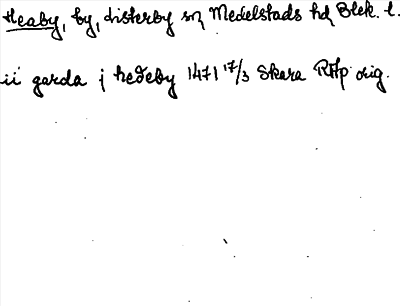 Heaby, by, Listerby sn, Medelstads hd, Blek. l.
ii garda j hedeby 1471 17/3 Skara RAp orig.